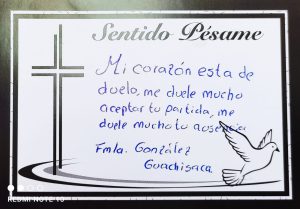 Sentido Pésame
Mi corazón esta de
duelo, me duele mucho
aceptar tu partida, me
duele mucho tu ausencia
Fmla. González
Guachisaca
REDMI NOTE 10